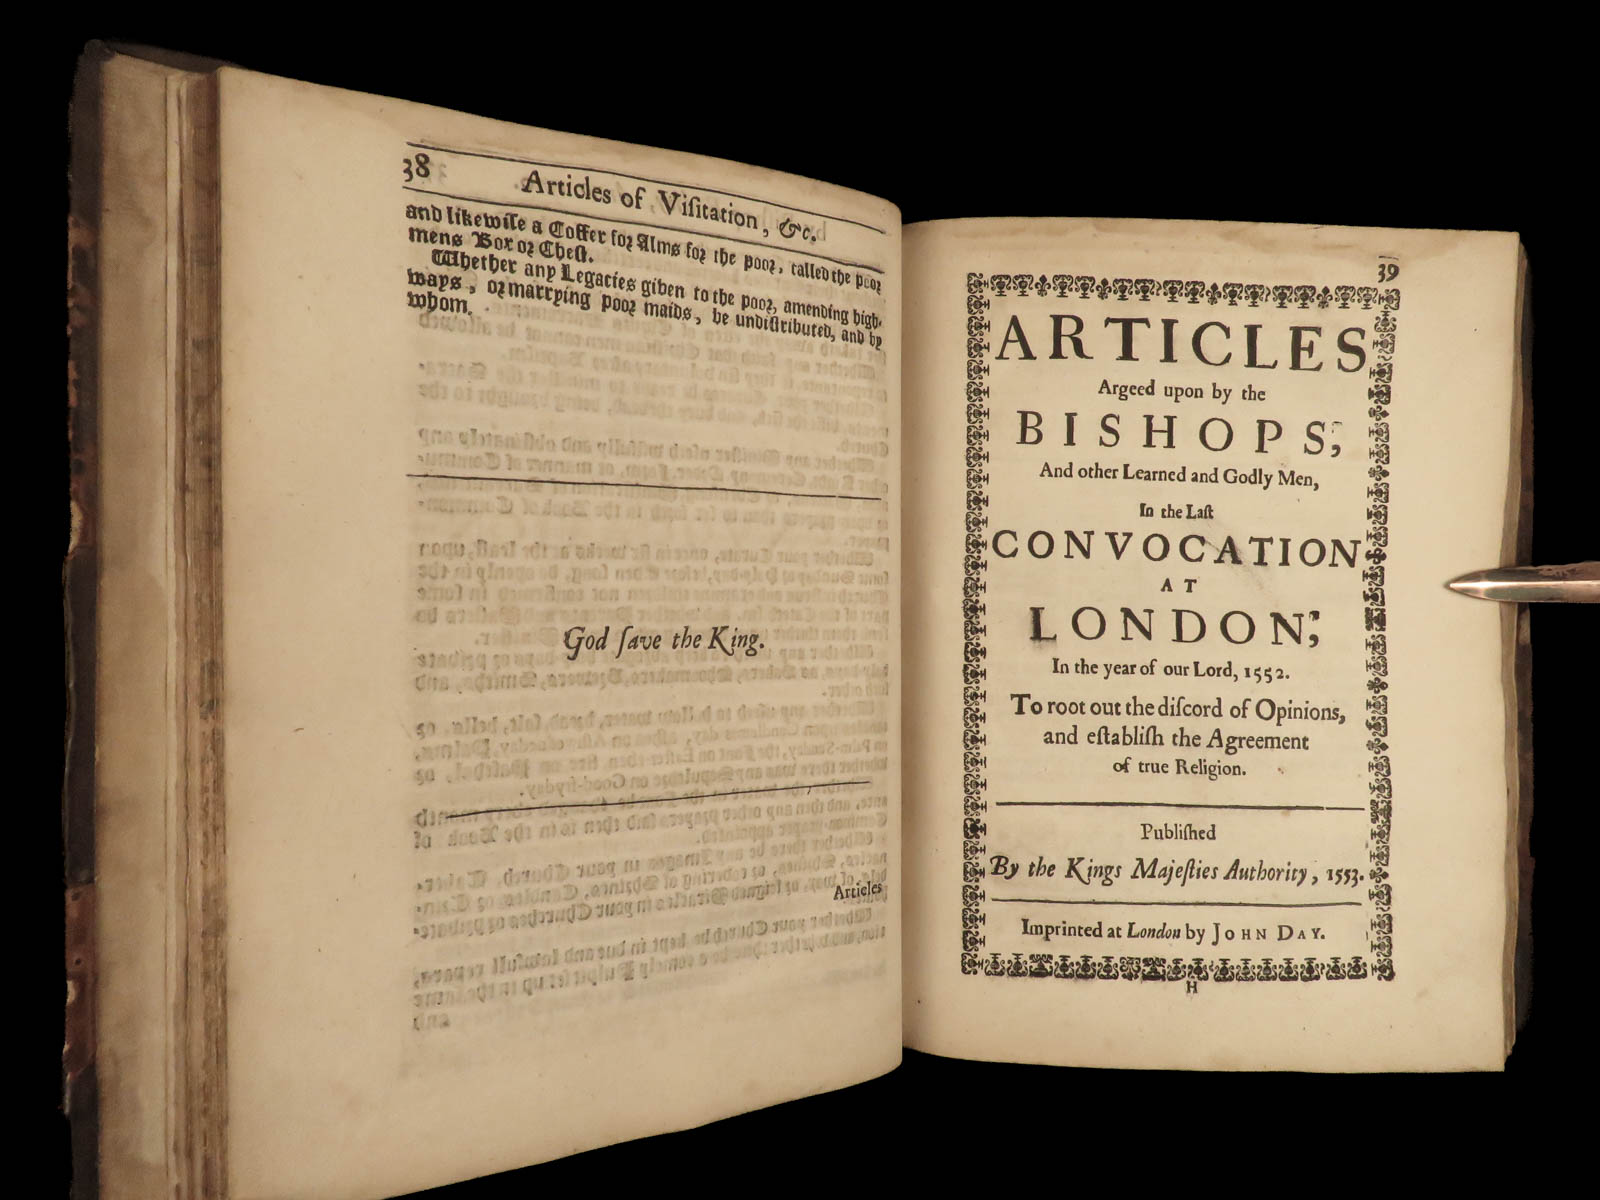 38 Articles of Viſitation, &c.
and likewiſe a Coffer for Alms for the poor, called the poor
mens Box or Cheſt.
Whether any Legacies given to the poor, amending high-
ways, or marrying poor maids, be undiſtributed, and by
whom.
God ſave the King.
Articles
39
ARTICLES
Argeed upon by the
BISHOPS,
And other Learned and Godly Men,
In the Laſt
CONVOCATION
AT
LONDON,
In the year of our Lord, 1552.
To root out the diſcord of Opinions,
and eſtabliſh the Agreement
of true Religion.
Publiſhed
By the Kings Majeſties Authority, 1553.
Imprinted at London by JOHN DAY.
H